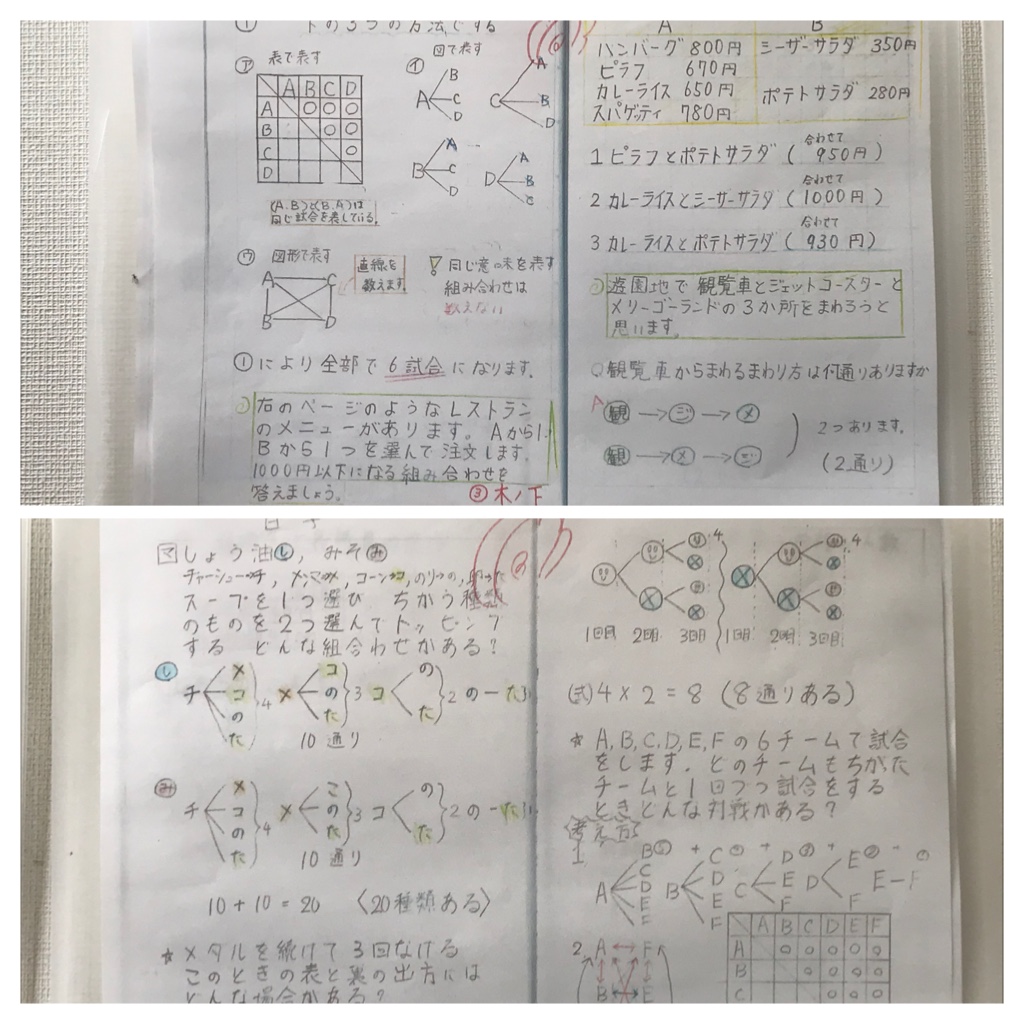 ① 下の3つの方法でする
㋐ 表で表す
A B C D
A ○ ○ ○
B ○ ○
C ○
D
(A.B)と(B.A)は
同じ試合を表している。
㋑ 図で表す
A B C D
C A B D
B A C D
D A B C
㋒ 図形で表す
A C
B D
直線を
数えます
! 同じ意味を表す
組み合わせは
数えない
①により全部で6試合になります。
右のページのようなレストラン
のメニューがあります。Aから1.
Bから1つを選んで注文します。
1000円以下になる組み合わせを
答えましょう。
③木ノ下
A B
ハンバーグ 800円 シーザーサラダ 350円
ピラフ 670円
カレーライス 650円 ポテトサラダ 280円
スパゲッティ 780円
合わせて
1 ピラフとポテトサラダ ( 950円 )
合わせて
2 カレーライスとシーザーサラダ ( 1000円 )
合わせて
3 カレーライスとポテトサラダ ( 930円 )
遊園地で観覧車とジェットコースターと
メリーゴーランドの3か所をまわろうと
思います。
Q観覧車からまわるまわり方は何通りありますか
A 観 → ジ → メ
観 → メ → ジ
2つあります。
(2通り)
しょう油し, みそみ
スープを1つ選び ちがう種類
のものを2つ選んでトッピング
する どんな組合わせがある?
し
チ メ コ の た 4 メ コ の た 3 コ の た 2 の ー た 1
10通り
み
チ メ コ の た 4 メ こ の た 3 コ の た 2 の ー た 1
10通り
10+10=20 〈20種類ある〉
☆メダルを続けて3回なげる
このときの表と裏の出方には
どんな場合がある?
4 4
1回目 2回目 3回目 1回目 2回目 3回目
(式)4×2=8 (8通りある)
☆ A,B,C,D,E,Fの6チームで試合
をします。どのチームもちがた
チームと1回づつ試合をする
ときどんな対戦がある?
考え方
1
A B C D E F
B C D E F
C D E F
D E F
E-F
2 A F
B E
A B C D E F
A ○ ○ ○ ○ ○
B ○ ○ ○ ○
C ○ ○ ○